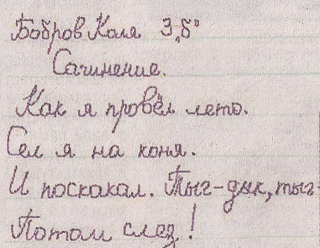 Бобров Коля 3„б"
Сачинение.
Как я провёл лето.
Сел я на коня.
И поскакал. Тыг-дык, тыг-
Потом слез!